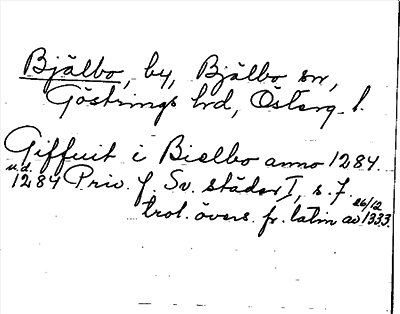 Bjälbo, by, Bjälbo sn,
Göstrings hrd, Österg. l.
Giffuit i Bielbo anno 1284.
u.d.
1284 Priv. f. Sv. städer I, s. 7.
trol. övers. fr. latin av 26/12 1333.